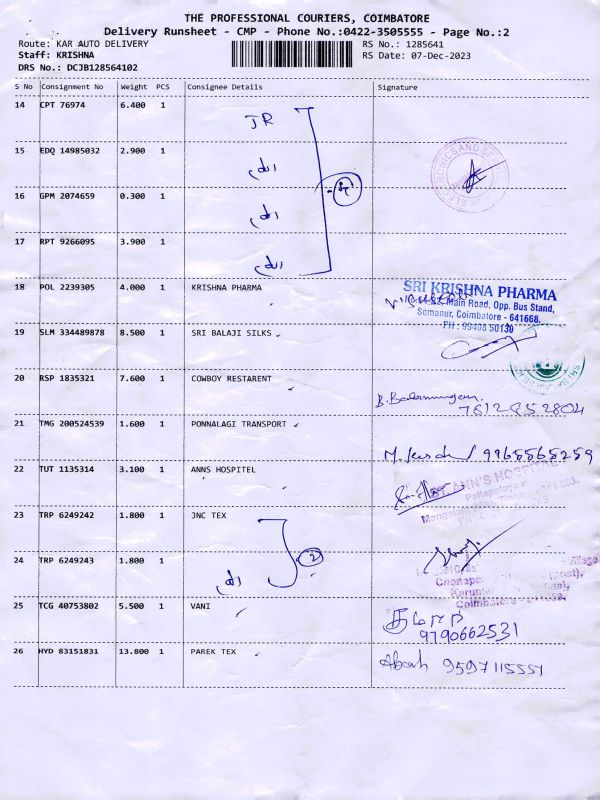 THE PROFESSIONAL COURIERS, COIMBATORE
Delivery Runsheet - CMP - Phone No.:0422-3505555 - Page No.:2
Route: KAR AUTO DELIVERY
RS No.: 1285641
Staff: KRISHNA
RS Date: 07-Dec-2023
DRS No.: DCJB128564102
S No Consignment No Weight PCS Consignee Details Signature
14 CPT 76974 6.400 1
JR
15 EDQ 14985032 2.900 1
16 GPM 2074659 0.300 1
4
17 RPT 9266095 3.900 1
18 POL 2239305 4.000 1 KRISHNA PHARMA
SRI KRISHNA PHARMA
Main Road, Opp. Bus Stand,
Somanur, Coimbatore - 641668.
PH : 99408 50130
19 SLM 334489878 8.500 1 SRI BALAJI SILKS
20 RSP 1835321 7.600 1 COWBOY RESTARENT
7612852804
21 TMG 200524539 1.600 1 PONNALAGI TRANSPORT
9965565259
22 TUT 1135314 3.100 1 ANNS HOSPITEL
ANN'S HOSPITAL
Pallapalayam
23 TRP 6249242 1.800 1 JNC TEX
2
24 TRP 6249243 1.800 1
Village
Coimbatore
25 TCG 40753802 5.500 1 VANI
9790662531
26 HYD 83151831 13.800 1 PAREK TEX
9597115551